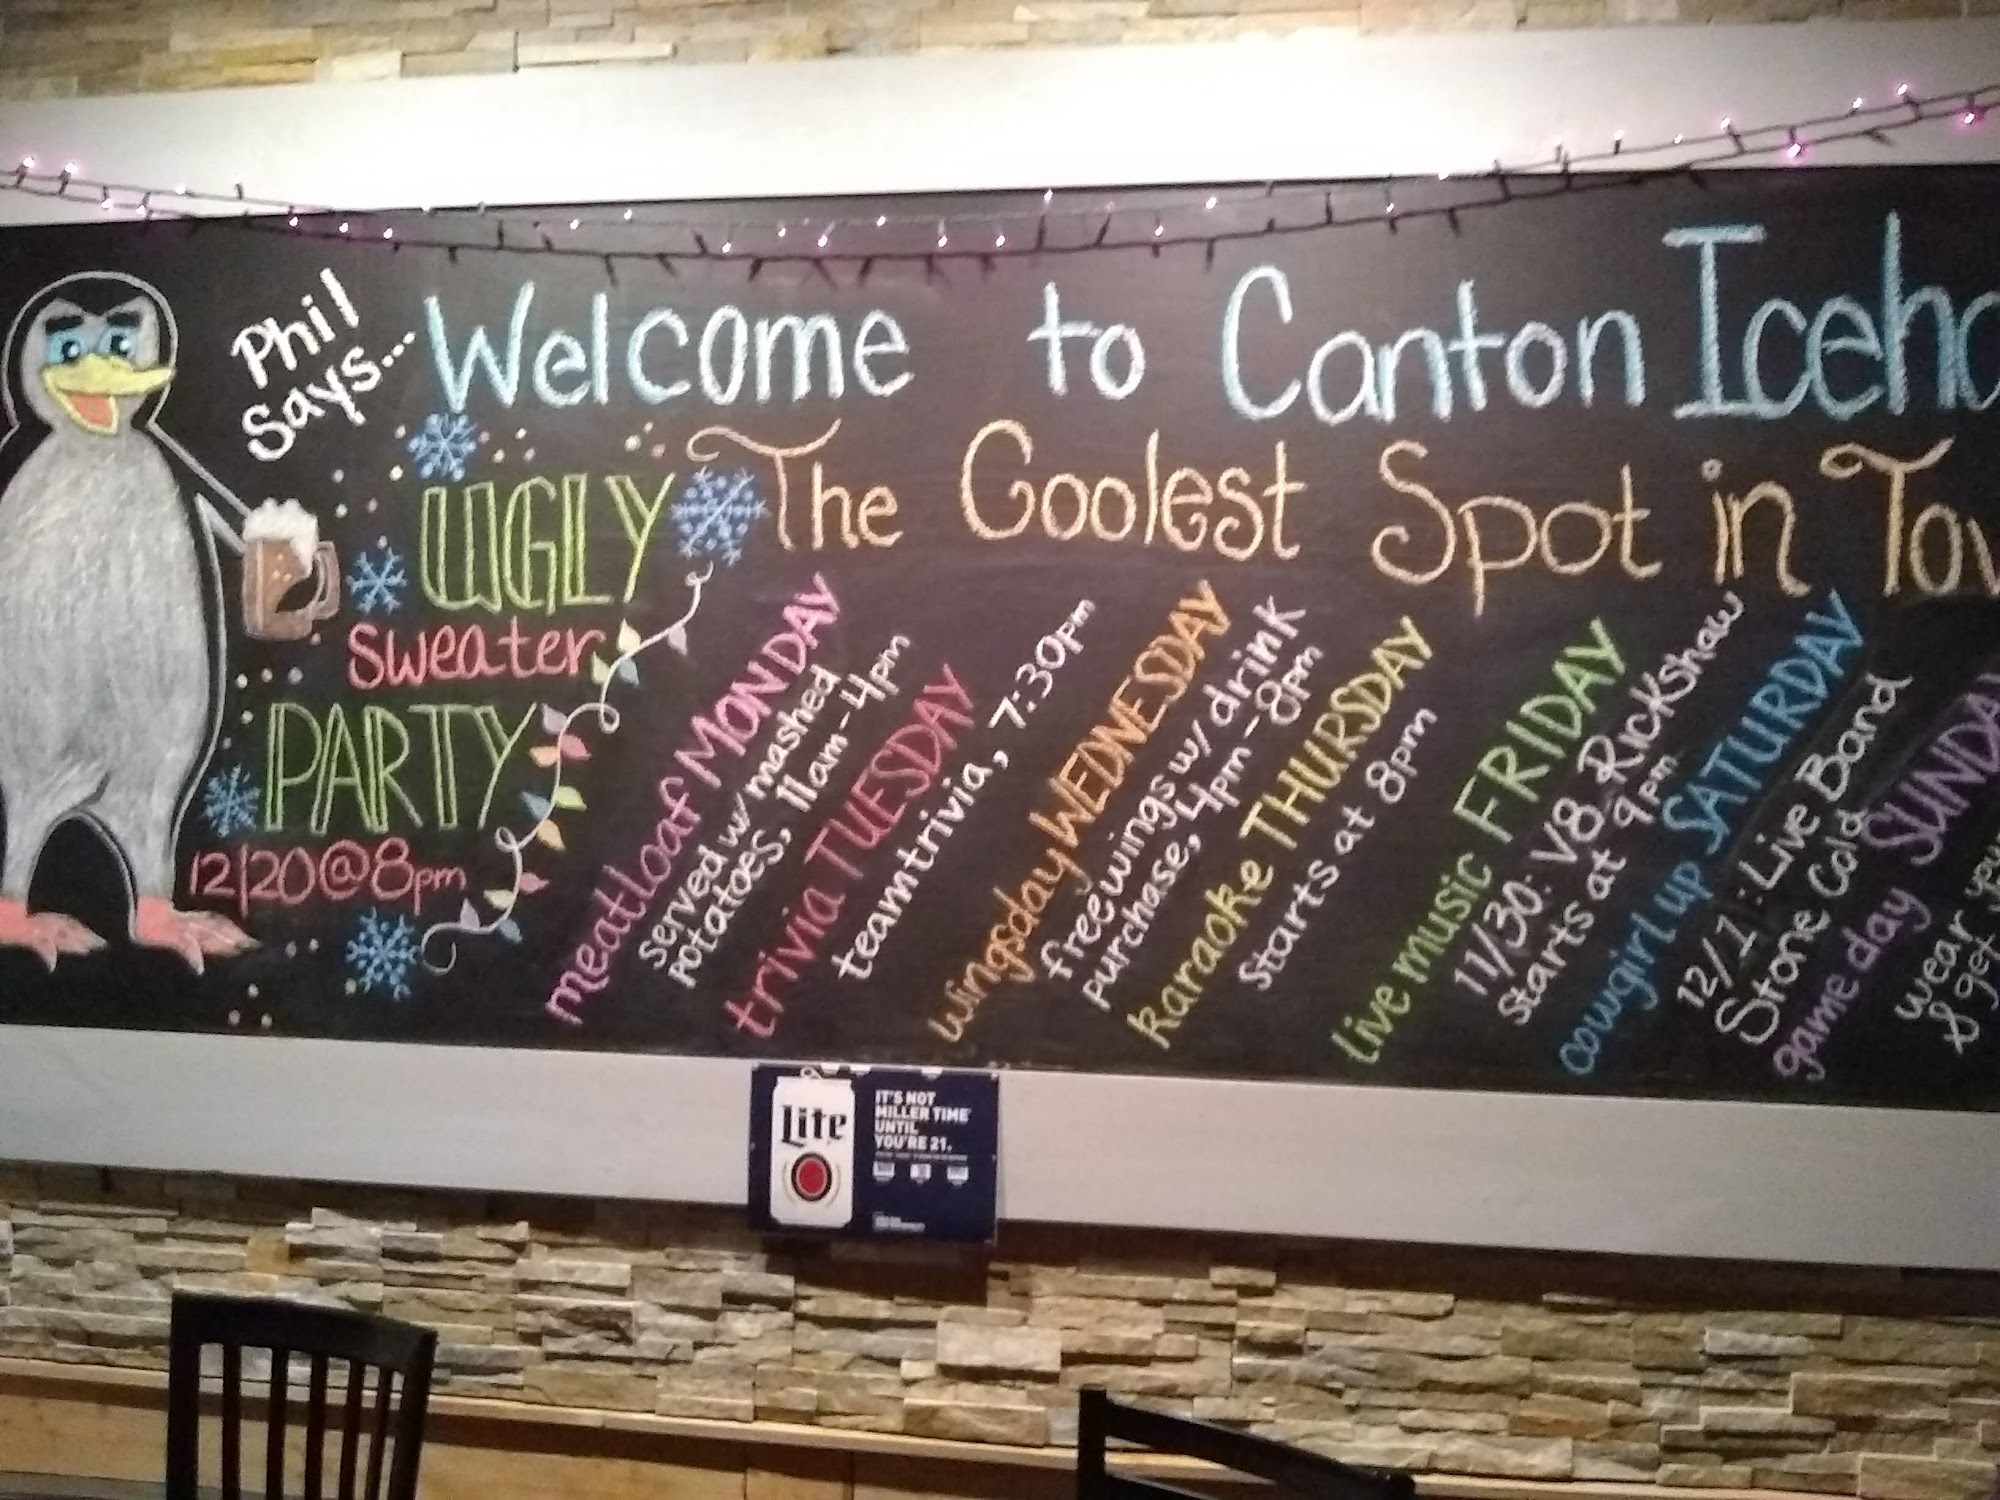 Phil
says...
Welcome to Canton Iceho
The Coolest Spot in Tow
UGLY
Sweater
PARTY
12/20@8pm
meatloaf MONDAY
served w/ mashed
potatoes, 11am-4pm
trivia TUESDAY
teamtrivia, 7:30pm
wingsday WEDNESDAY
free wings w/ drink
purchase, 4pm-8pm
karaoke THURSDAY
Starts at 8pm
live music FRIDAY
11/30: V8 Rickshaw
Starts at 9pm
cowgirl up SATURDAY
12/1: Live Band
Stone Cold
game day SUNDAY
wear your
& get
Lite
IT'S NOT
MILLER TIME
UNTIL
YOU'RE 21.